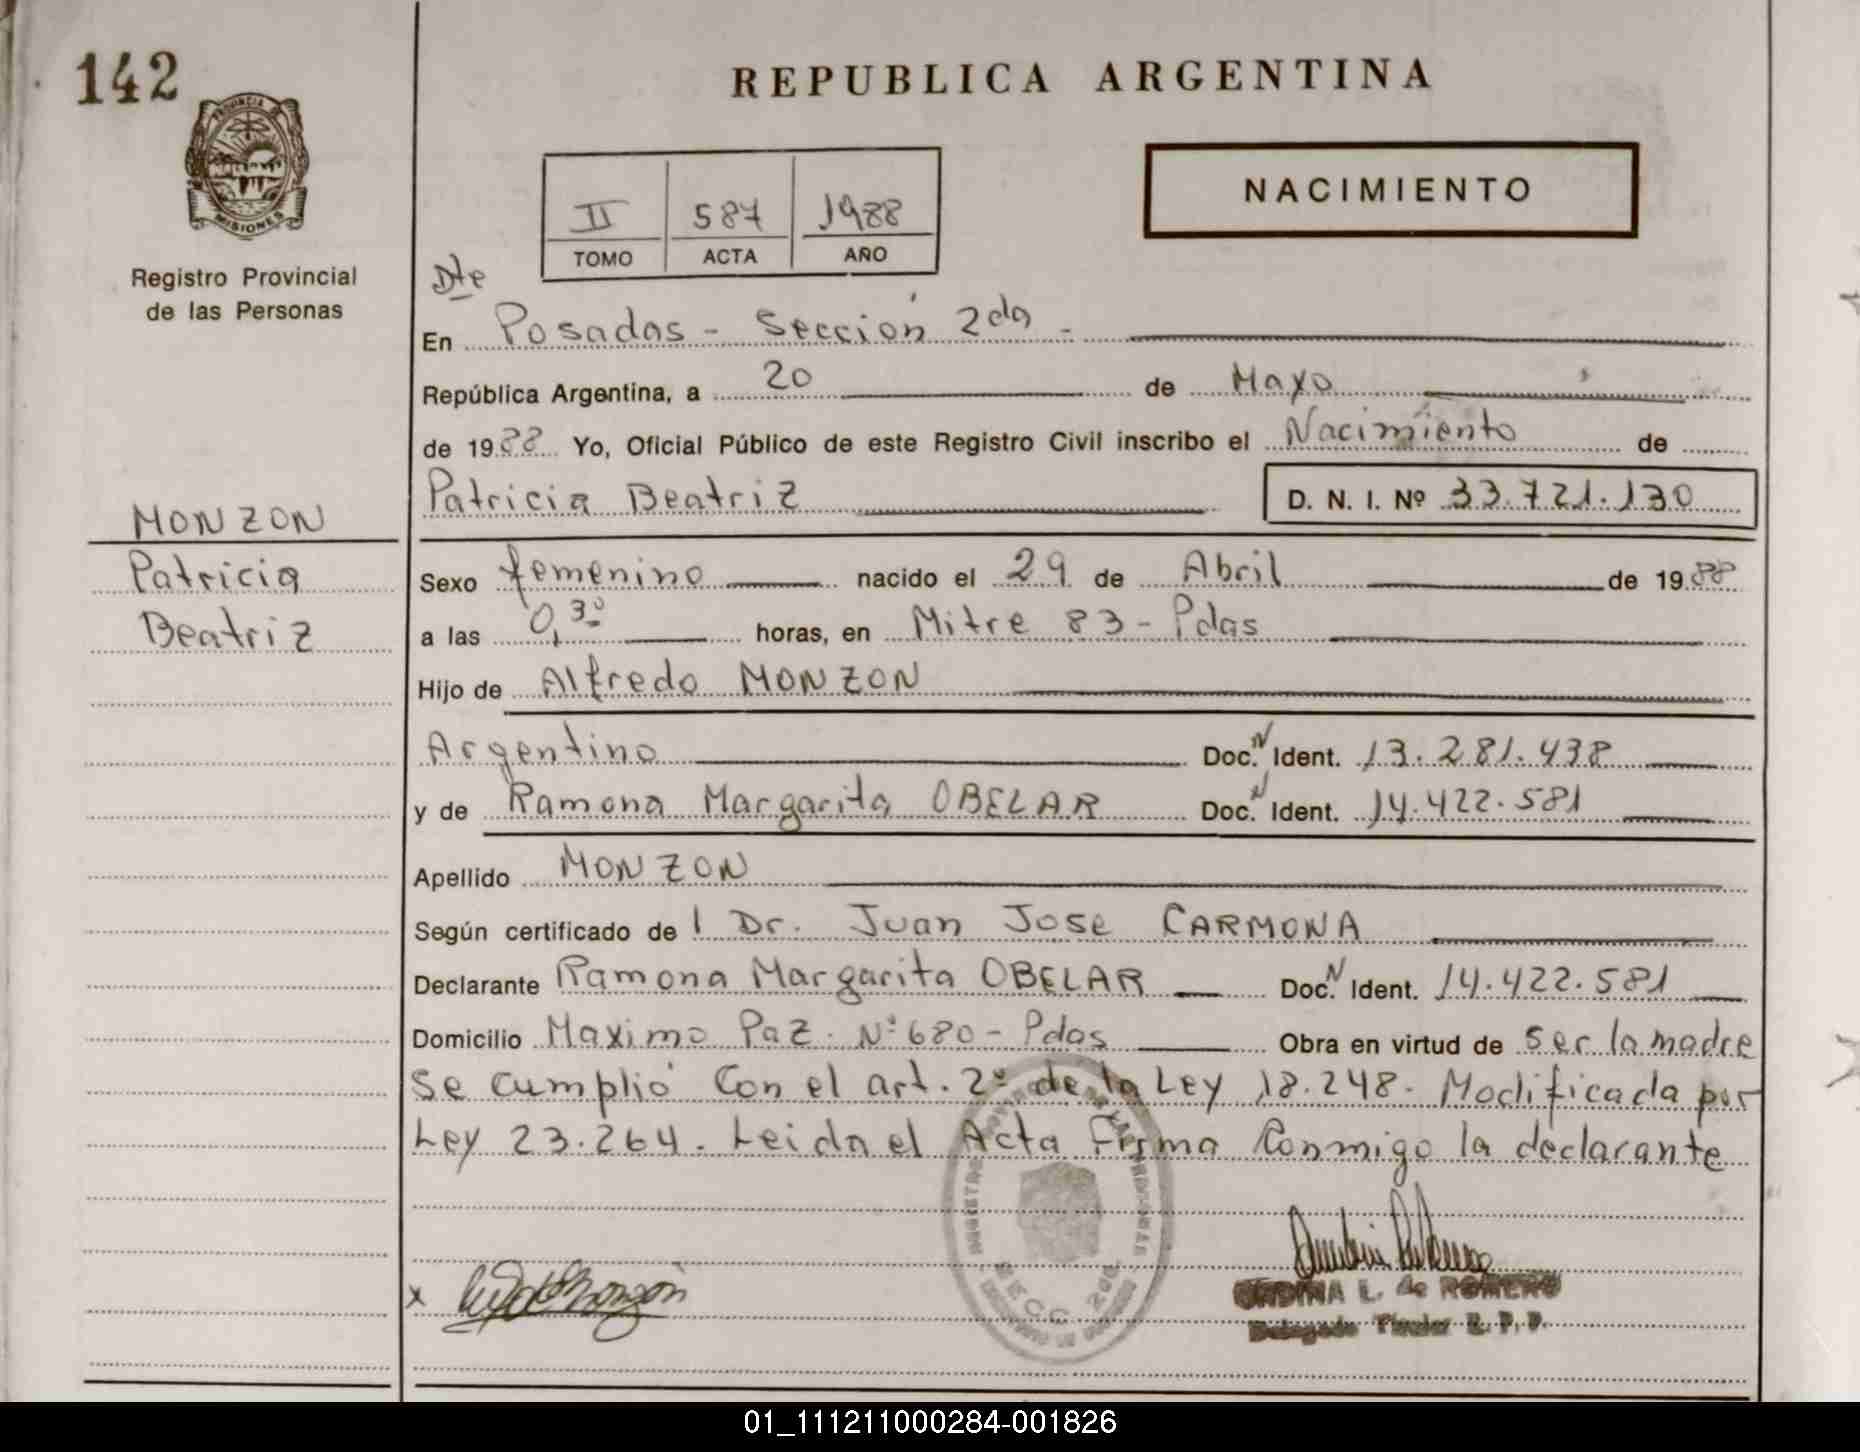 142
REPUBLICA ARGENTINA
PROVINCIA DE
MISIONES
Registro Provincial
de las Personas
II 587 1988
TOMO ACTA AÑO
NACIMIENTO
Dte
En Posadas - Sección 2da -
República Argentina, a 20 de Mayo
de 1988 Yo, Oficial Público de este Registro Civil inscribo el Nacimiento de
Patricia Beatriz D. N. I. Nº 33.721.130
MONZON
Patricia
Beatriz
Sexo femenino nacido el 29 de Abril de 1988
a las 0,30 horas, en Mitre 83 - Pdas
Hijo de Alfredo MONZON
Argentino Doc. N Ident. 13.281.438
y de Ramona Margarita OBELAR Doc. N Ident. 14.422.581
Apellido MONZON
Según certificado de l Dr. Juan Jose CARMONA
Declarante Ramona Margarita OBELAR Doc. N Ident. 14.422.581
Domicilio Maximo Paz. Nº 680 - Pdas Obra en virtud de ser la madre
Se cumplió Con el art. 2º de la Ley 18.248. Modificada por
Ley 23.264. Leida el Acta Firma Conmigo la declarante
x
SECC. 2da.
ONDINA L. de ROMERO
Delegado Titular R. P. P.
01_111211000284-001826